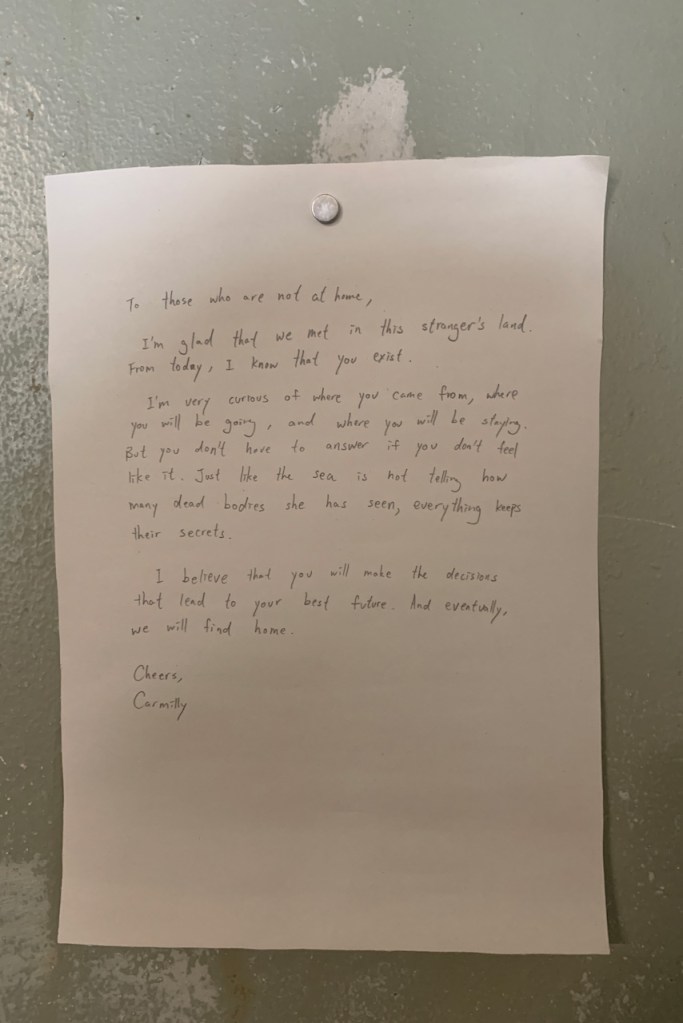 To those who are not at home,
I'm glad that we met in this stranger's land.
From today, I know that you exist.
I'm very curious of where you came from, where
you will be going, and where you will be staying.
But you don't have to answer if you don't feel
like it. Just like the sea is not telling how
many dead bodies she has seen, everything keeps
their secrets.
I believe that you will make the decisions
that lead to your best future. And eventually,
we will find home.
Cheers,
Carmilly